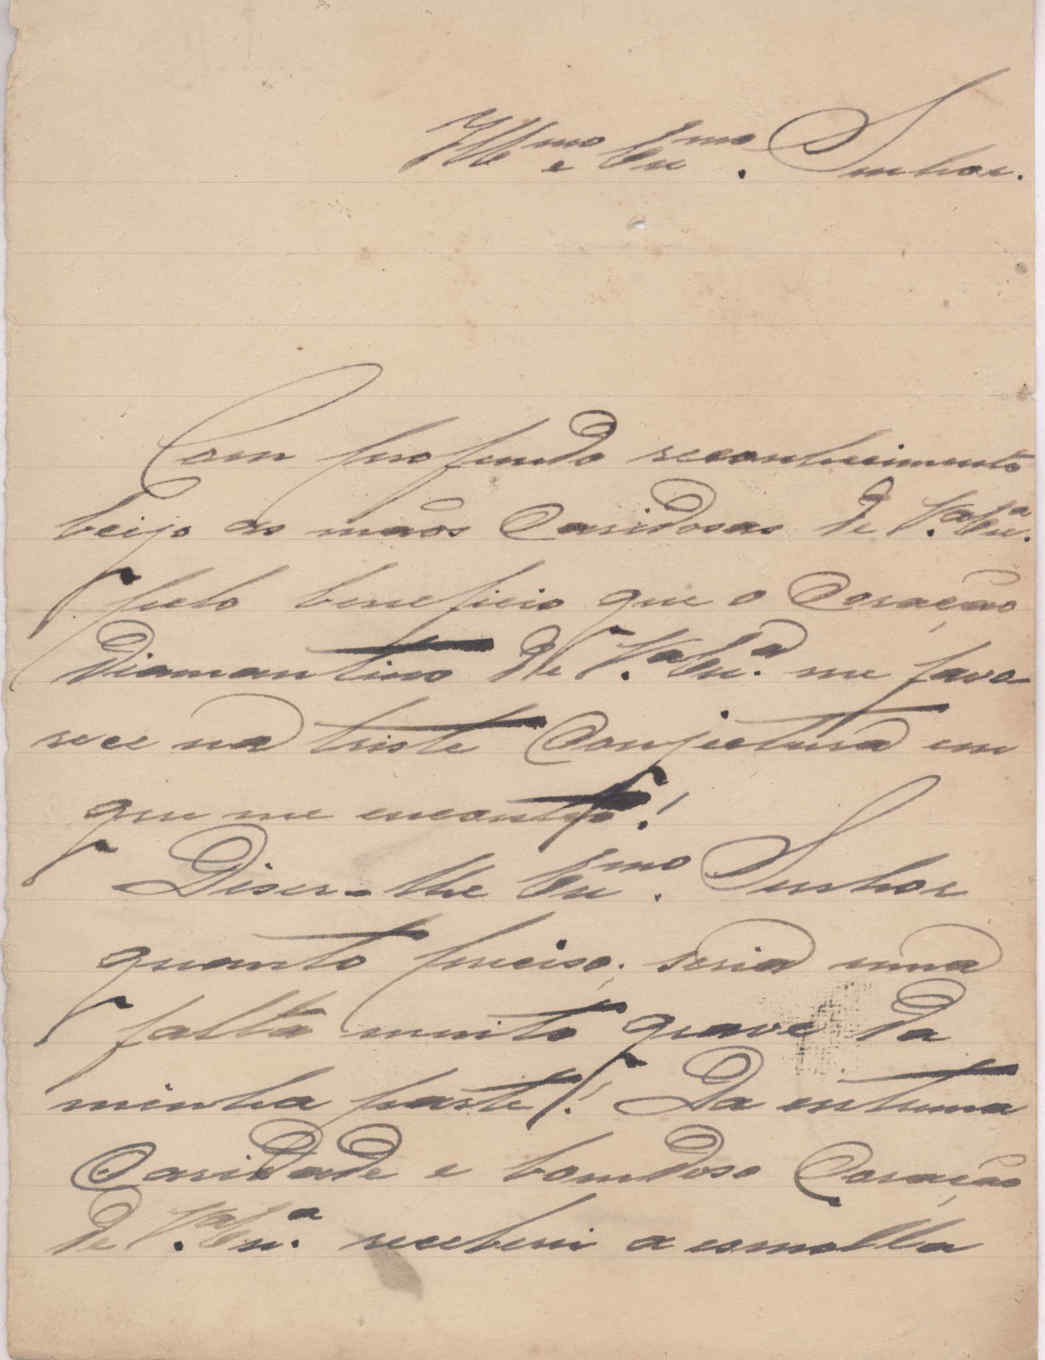 Ill.mo e Ex.mo Senhor.
Com profundo reconhecimento
beijo as mãos Caridosas de V.a Ex.a
pelo beneficio que o Coração
Diamantino de V.a Ex.a me favo-
rece na triste Conjectura em
que me encontro!
Diser-lhe Ex.mo Senhor
quanto preciso, seria uma
falta muito grave da
minha parte! Da extrema
Caridade e bomdoso Coração
de V.a Ex.a receberei a esmolla